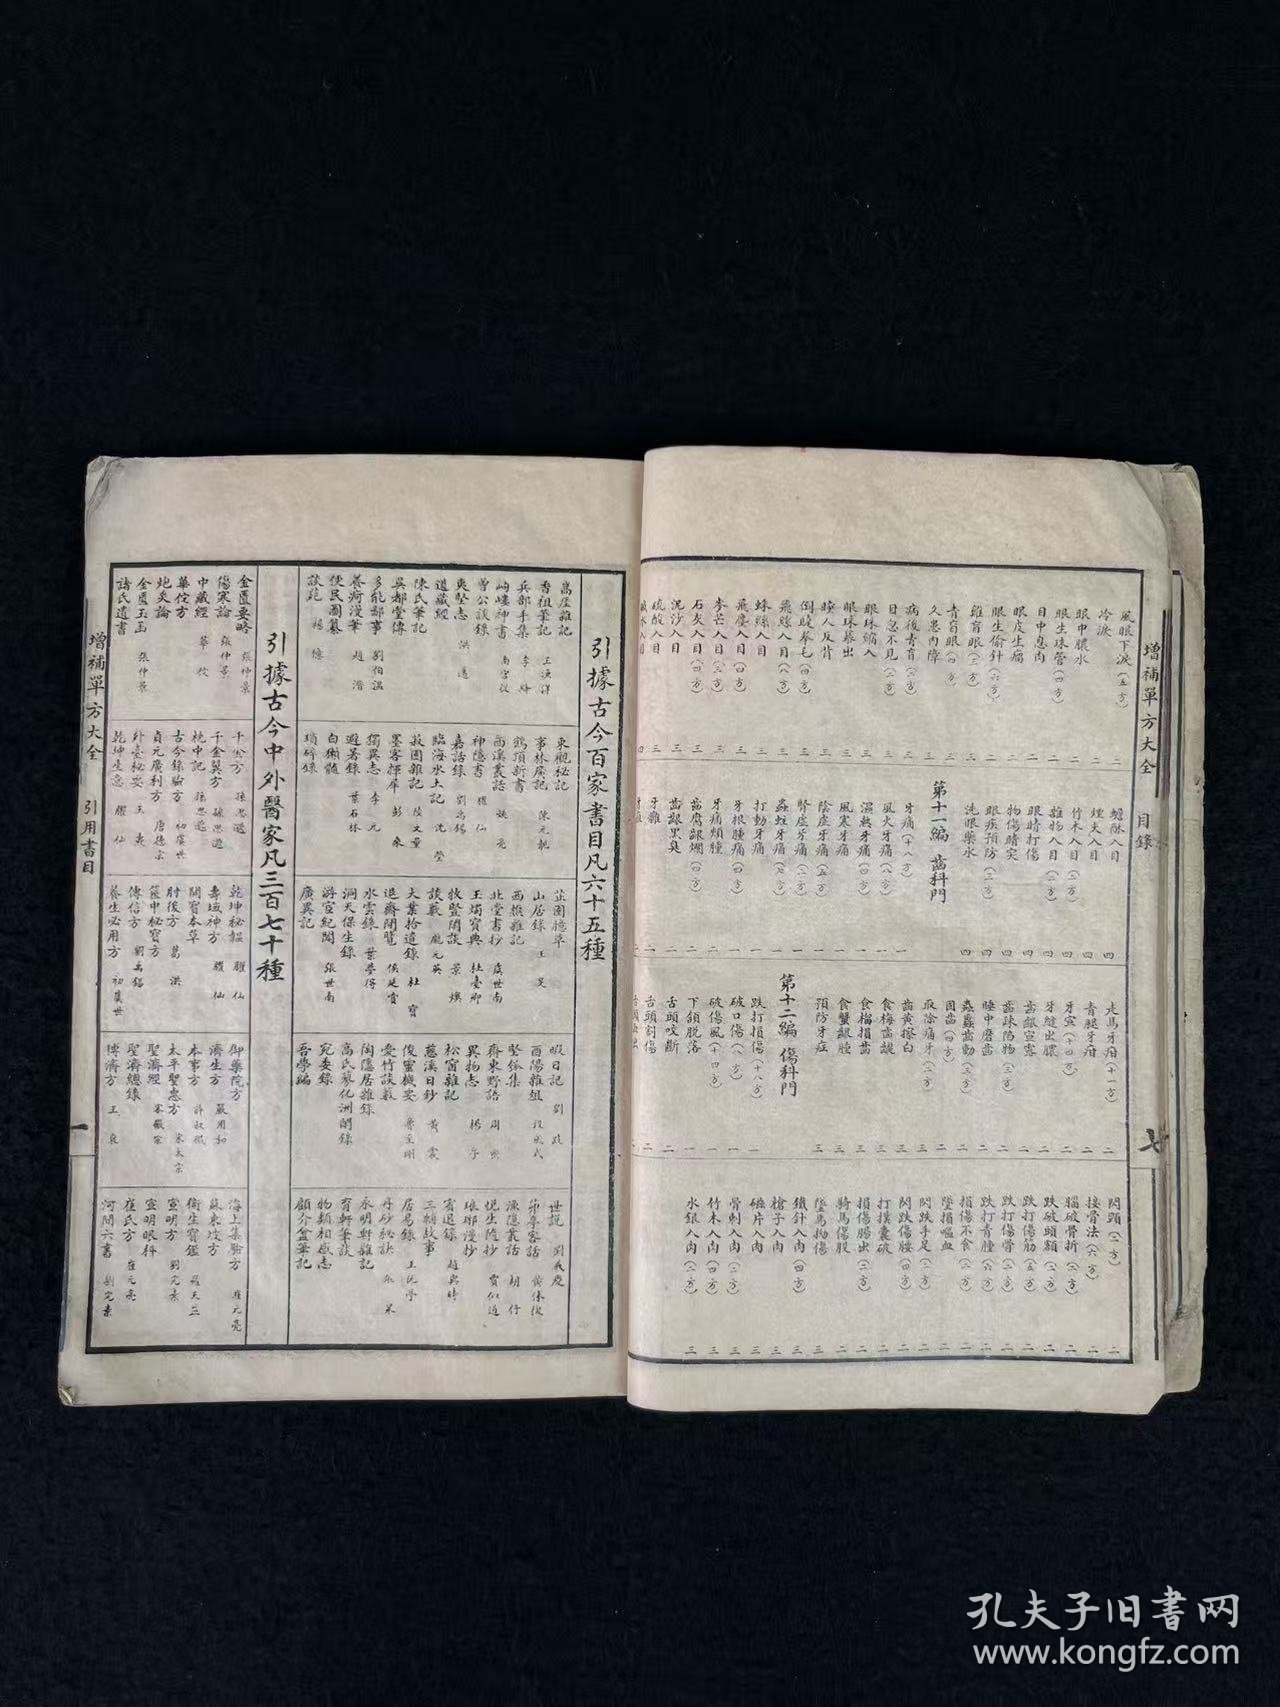 增補單方大全 目錄 七
風眼下淚(五方) 二
冷淚 二
眼中膿水 二
眼生珠管(四方) 二
目中息肉 二
眼皮生瘤 二
眼生偷針(六方) 二
雞盲眼(三方)
青盲眼(四方) 三
久患內障 三
病後青盲(三方) 三
目忽不見(二方) 三
眼珠縮入 三
眼珠暴出 三
瞳人反背 三
倒睫拳毛(四方) 三
飛絲入目(八方) 三
蛛絲入目 三
飛塵入目(四方) 三
麥芒入目(三方) 三
石灰入目(四方) 三
泥沙入目 三
硫酸入目 三
鹹水入目 四
蟾酥入目 四
煙火入目 四
竹木入目(二方) 四
雜物入目(三方) 四
眼睛打傷 四
物傷睛突 四
眼疾預防(三方) 四
洗眼藥水 四
第十一編 齒科門
牙痛(十八方) 一
風火牙痛(八方) 一
濕熱牙痛(四方) 一
風寒牙痛 一
陰虛牙痛(五方) 一
腎虛牙痛(二方) 一
蟲蛀牙痛(四方) 一
打動牙痛 一
牙根腫痛(四方) 一
牙痛頰腫 一
齒腐齦爛(四方) 二
齒齦黑臭 二
走馬牙疳(十一方) 二
青腿牙疳 二
牙宣(十四方) 二
牙縫出膿 二
齒齦宣露 二
齒疎陷物(三方) 二
睡中磨齒 二
蟲蟲齒動(三方) 二
固齒(四方) 二
取除痛牙(二方) 三
齒黃擦白 三
食梅齒齼 三
食榴損齒 三
食蟹齦腫 三
預防牙症 三
第十二編 傷科門
跌打損傷(十八方) 一
破口傷(八方) 一
破傷風(十四方) 一
下頷脫落 一
舌頭咬斷 二
舌頭割傷 二
閃頸(二方) 二
接骨法(六方) 二
腦破骨折(三方) 二
跌破頭額(二方) 二
跌打傷筋(五方) 二
跌打傷骨(三方) 二
跌打青腫(六方) 二
損傷不食(二方) 二
墜損嘔血 二
閃跌手足(二方) 二
閃跌傷腰(四方) 二
打撲囊破 二
損傷腸出(二方) 二
騎馬傷股 二
墜馬拗傷 三
鐵針入肉(四方) 三
槍子入肉 三
磁片入肉 三
骨刺入肉(三方) 三
竹木入肉(四方) 三
水銀入肉(二方) 三
引據古今百家書目凡六十五種
嵩崖雜記
香祖筆記 王漁洋
兵部手集 李絳
岣嶁神書 南宮從
曾公談錄
夷堅志 洪邁
道藏經
陳氏筆記
吳都堂傳
多能鄙事 劉伯溫
養疴漫筆 趙溍
便民圖纂
談苑 楊億
東觀秘記
事林廣記 陳元靚
鶴頂新書
西溪叢話 姚寬
神隱書 臞仙
嘉話錄 劉禹錫
臨海水土記 沈瑩
菽園雜記 陸文量
墨客揮犀 彭乘
獨異志 李元
避暑錄 葉石林
白獺髓
瑣碎錄
芷園臆草
山居錄 王旻
西樵雜記
北堂書抄 虞世南
玉燭寶典 杜臺卿
牧豎閒談 景煥
談藪 龐元英
大業拾遺錄 杜寶
退齋閒覽 侯延賞
水雲錄 葉夢得
洞天保生錄
游宦紀聞 張世南
廣異記
暇日記 劉跂
酉陽雜俎 段成式
堅瓠集
齊東野語 周密
異物志 楊孚
松窗雜記
慈溪日鈔 黃震
俊靈機要
愛竹談藪 魯至剛
陶隱居雜錄
高氏蓼花洲閒錄
宛委錄
吾學編
世說 劉義慶
茆亭客話 黃休復
漁隱叢話 胡仔
悅生隨抄 賈似道
琅琊漫抄
賓退錄 趙與時
三輔故事
居易錄 王阮亭
丹砂秘訣 張杲
永明軒雜記
育軒筆談
物類相感志
顧介盦筆記
引據古今中外醫家凡三百七十種
金匱要略 張仲景
傷寒論 張仲景
中藏經 華佗
華佗方
炮炙論
金匱玉函 張仲景
諸氏遺書
千金方 孫思邈
千金翼方 孫思邈
枕中記 孫思邈
古今錄驗方 初虞世
貞元廣利方 唐德宗
外臺秘要 王燾
乾坤生意 臞仙
乾坤秘韞 臞仙
壽域神方 臞仙
開寶本草
肘後方 葛洪
篋中秘寶方
傳信方 劉禹錫
養生必用方 初虞世
御藥院方
濟生方 嚴用和
本事方 許叔微
太平聖惠方 宋太宗
聖濟經 宋徽宗
聖濟總錄
博濟方 王袞
海上集驗方 崔元亮
蘇東坡方
衛生寶鑑 羅天益
宣明方 劉完素
宣明眼科
崔氏方 崔元亮
河間六書 劉完素
增補單方大全 引用書目 一
孔夫子旧書网
www.kongfz.com